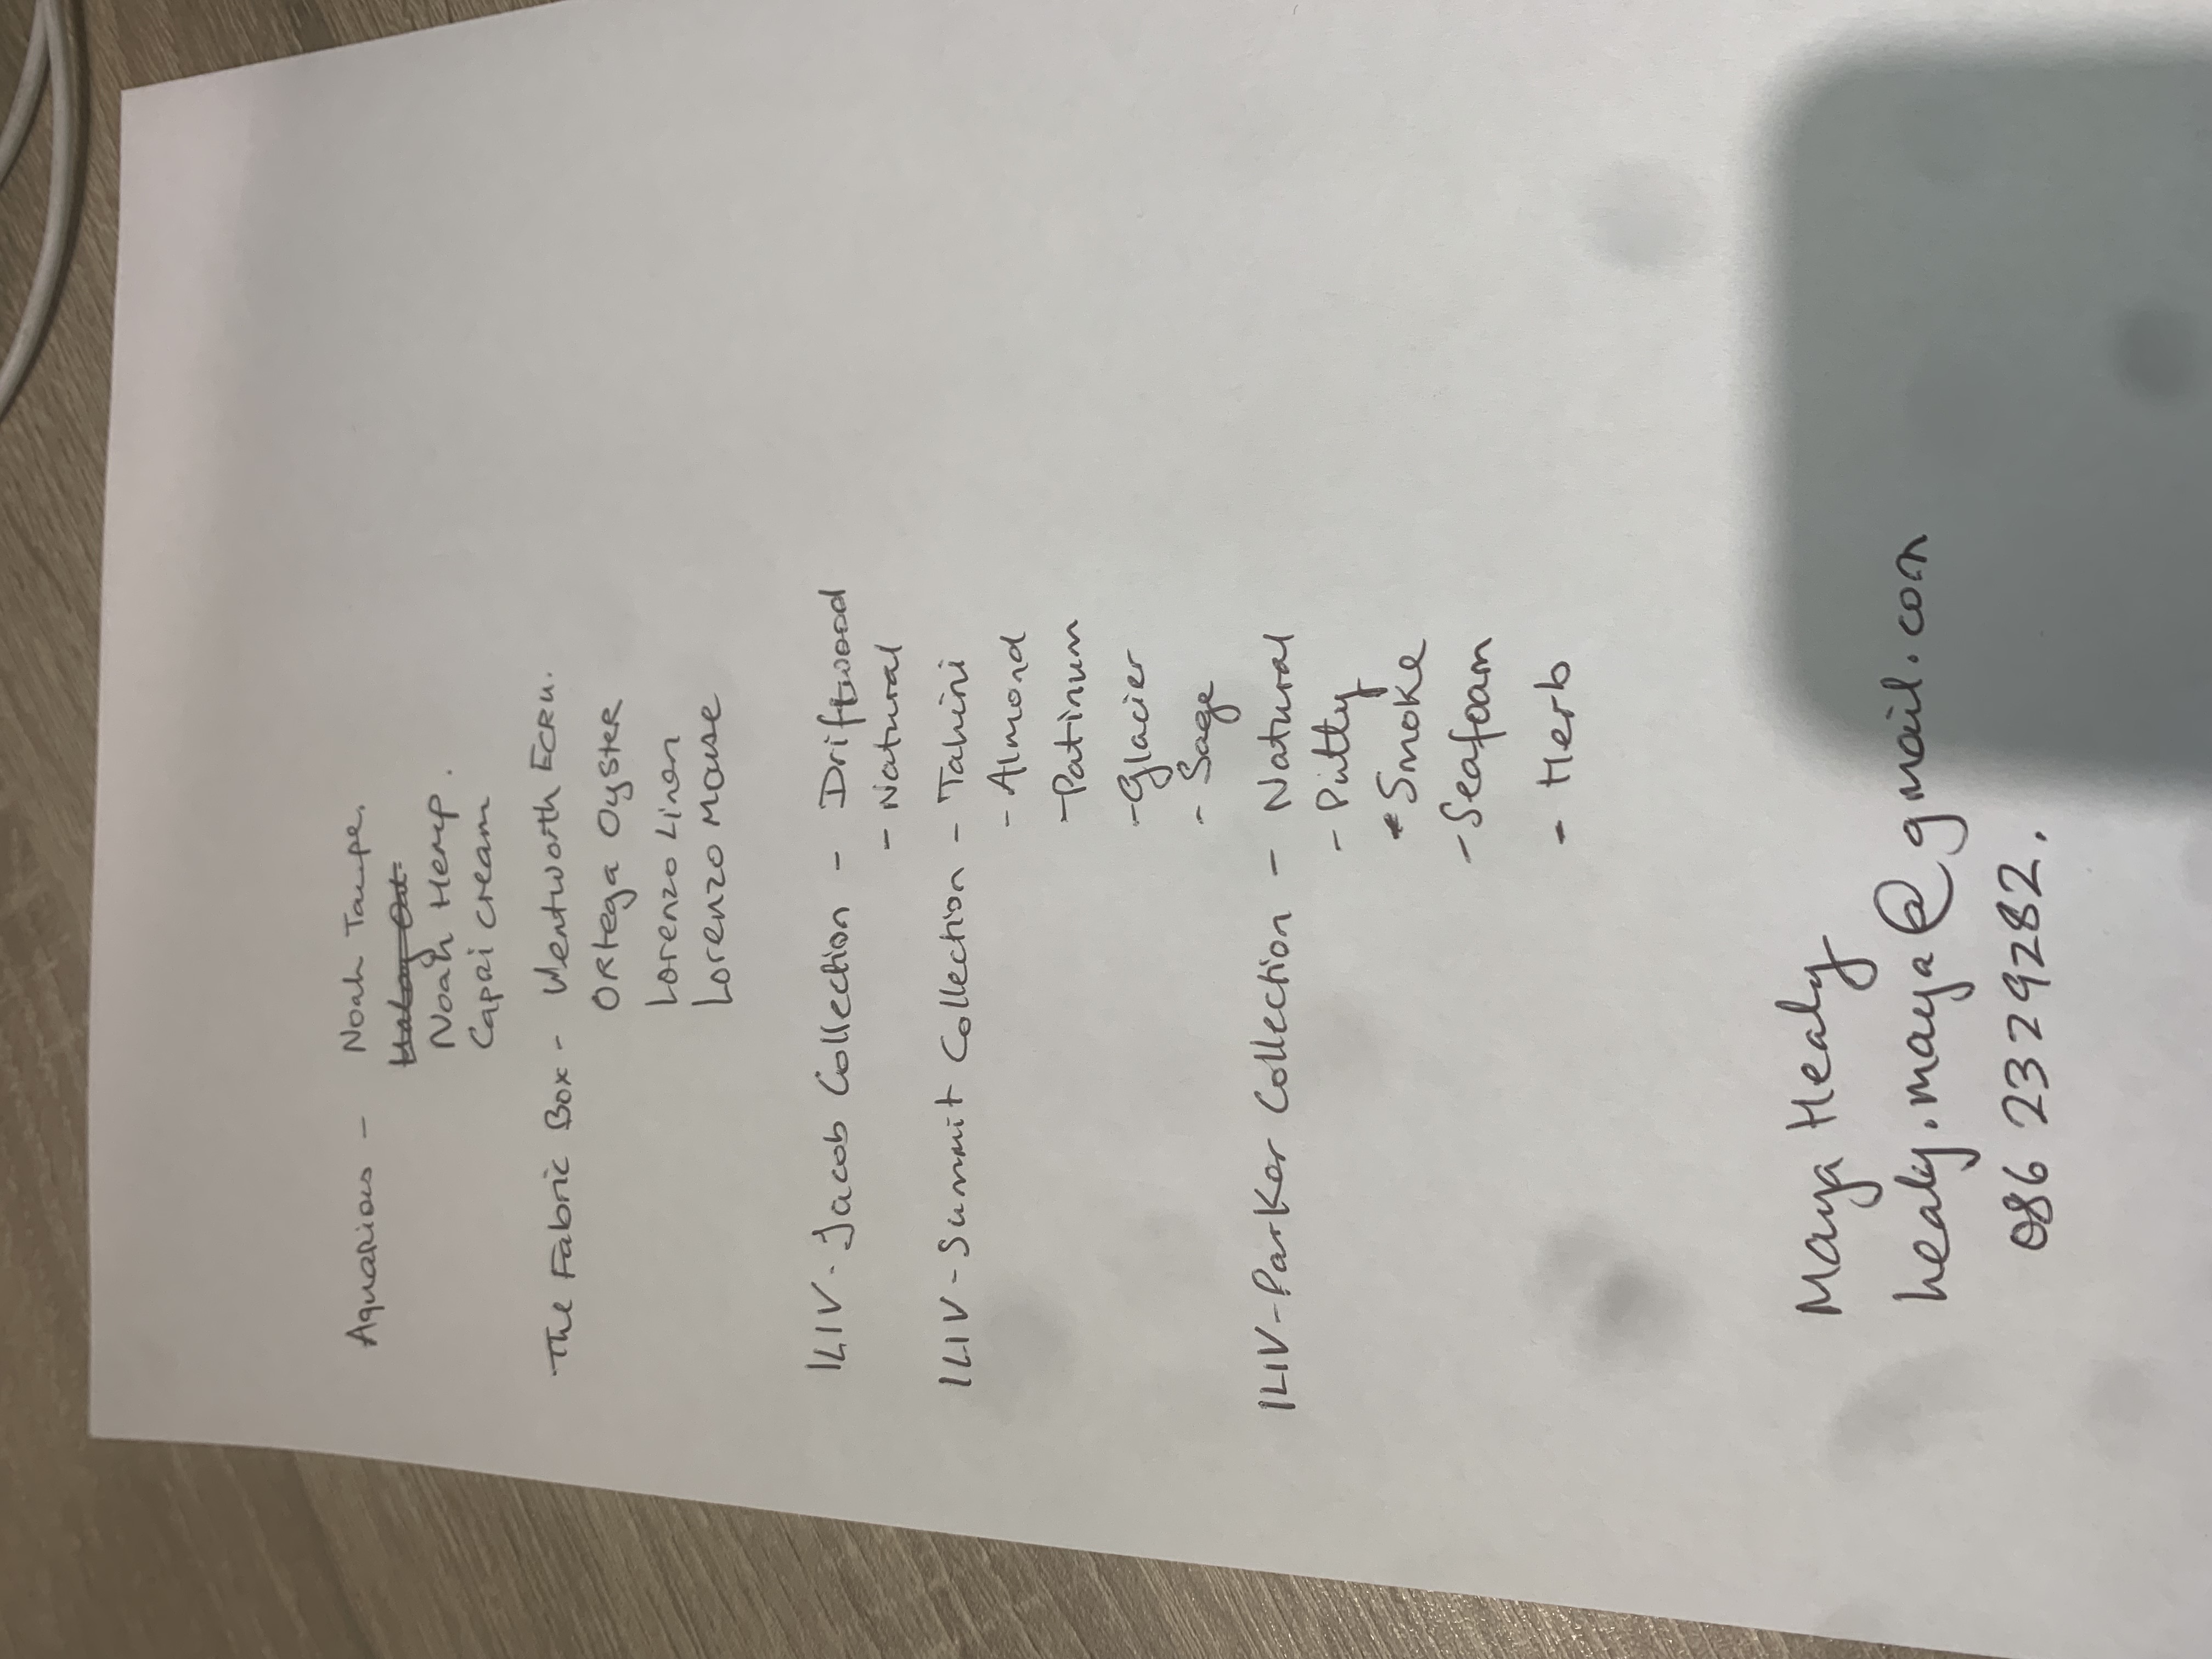 Aquarious - Noah Taupe.
Noah Hemp.
Capri cream
The Fabric Box - Wentworth Ecru.
Ortega Oyster
Lorenzo Linen
Lorenzo Mouse
ILIV - Jacob Collection - Driftwood
- Natural
ILIV - Summit Collection - Tahini
- Almond
- Patinum
- Glacier
- Sage
ILIV - Parker Collection - Natural
- Putty
- Smoke
- Seafoam
- Herb
Maya Healy
healy.maya@gmail.com
086 2329282.